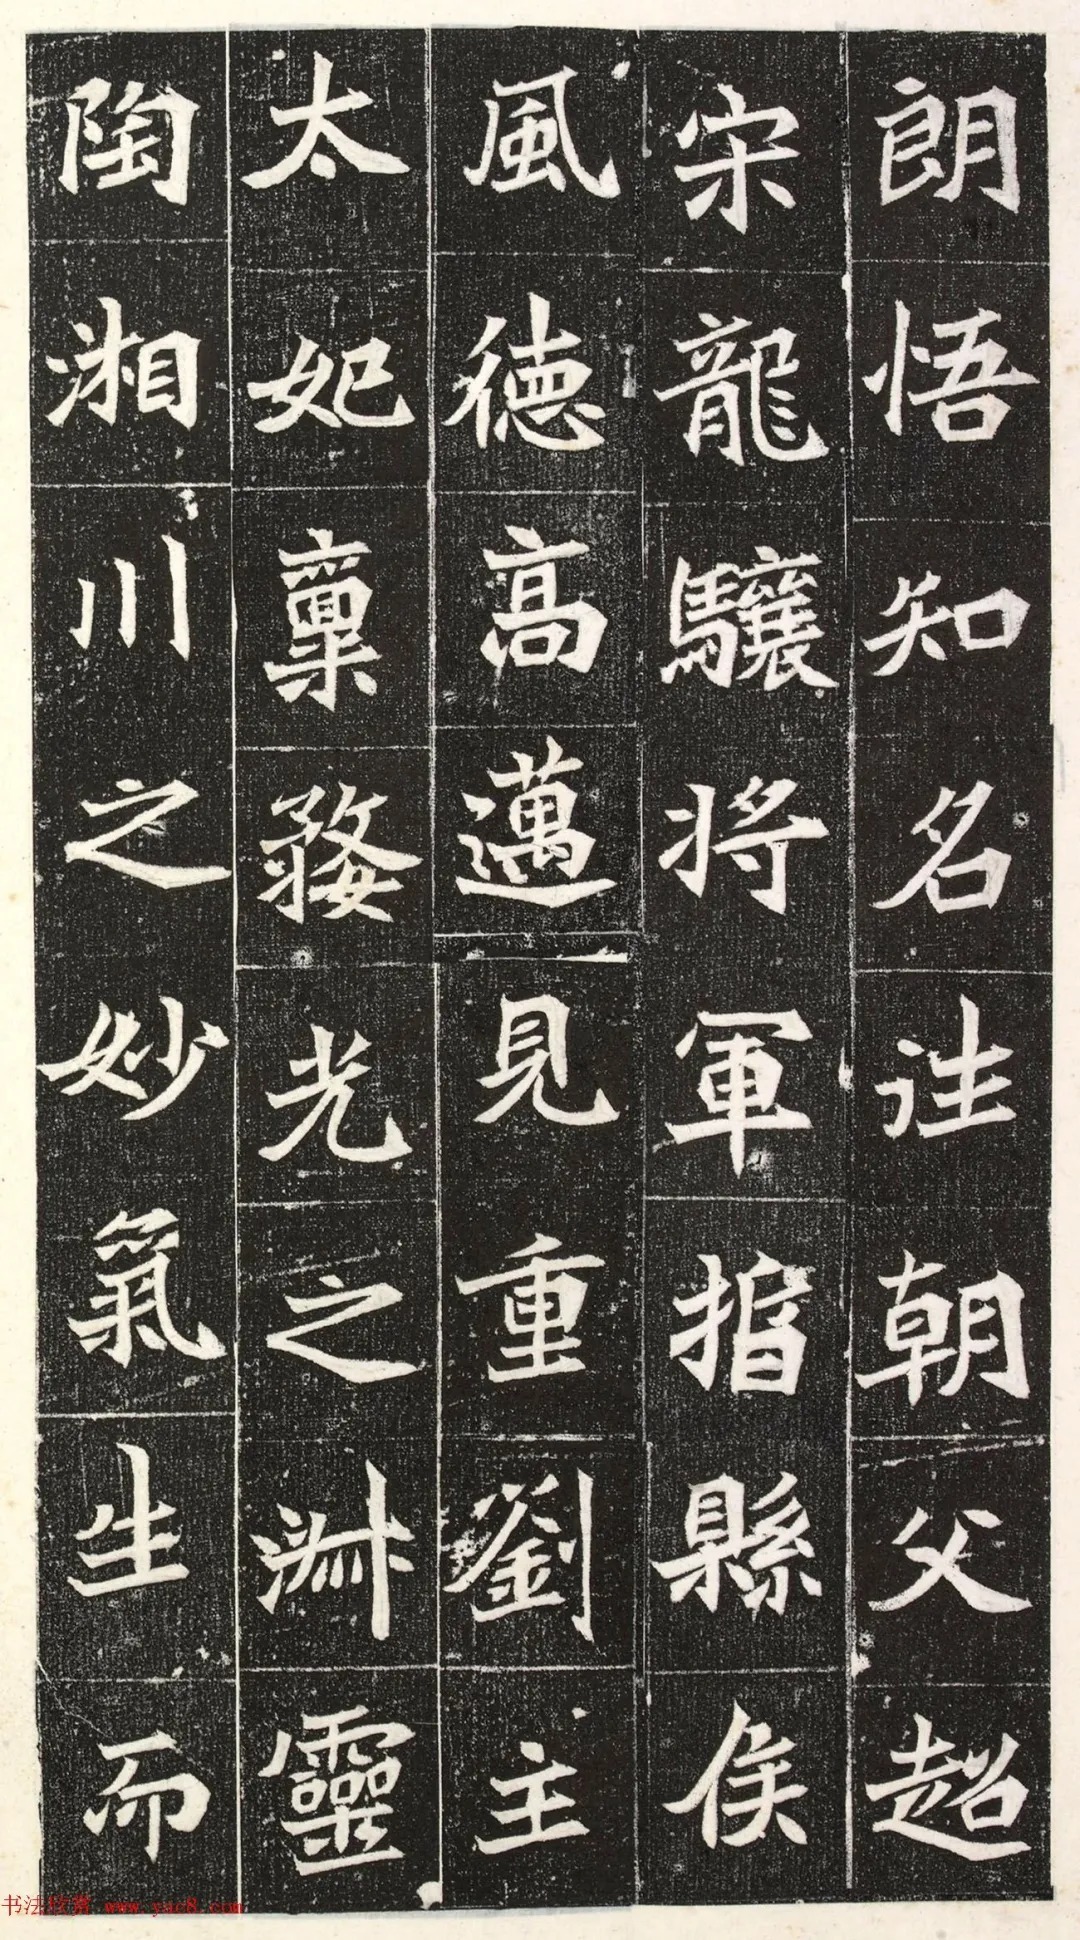 朗悟知名注朝父超
宋龍驤將軍揟縣侯
風德高邁見重劉主
太妃稟婺光之淋靈
陶湘川之妙氣生而
www.yac8.com